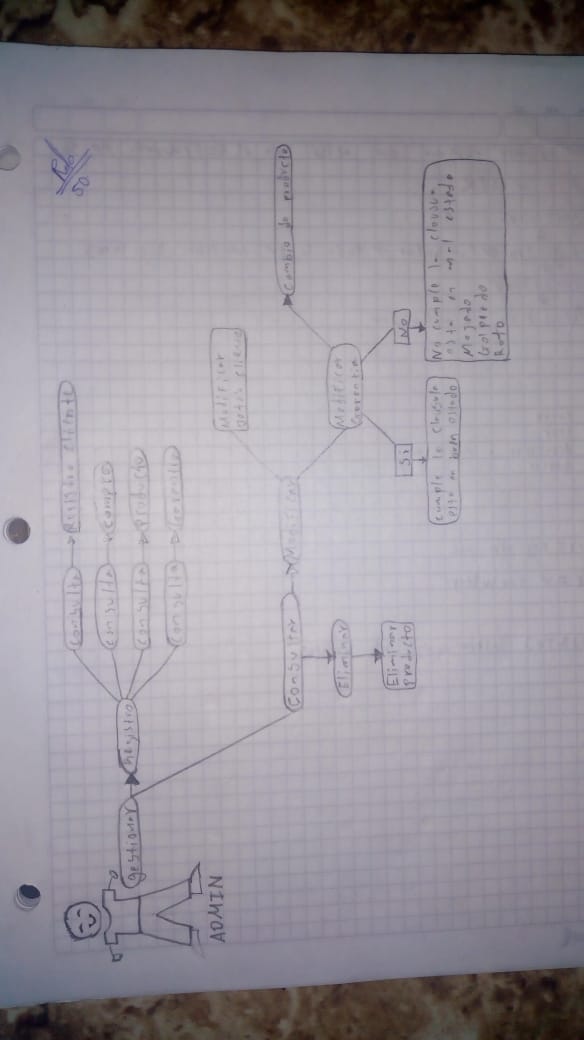 ADMIN
gestionar
Registro
Consulta
Registro cliente
Consulta
compra
Consulta
Producto
Consulta
Garantia
Consultar
Modificar
Modificar
Datos cliente
Modificar
Garantia
Cambio de producto
Si
cumple la clausula
esta en buen estado
No
No cumple la clausula
esta en mal estado
Mojado
Golpeado
Roto
Eliminar
Eliminar
producto
50